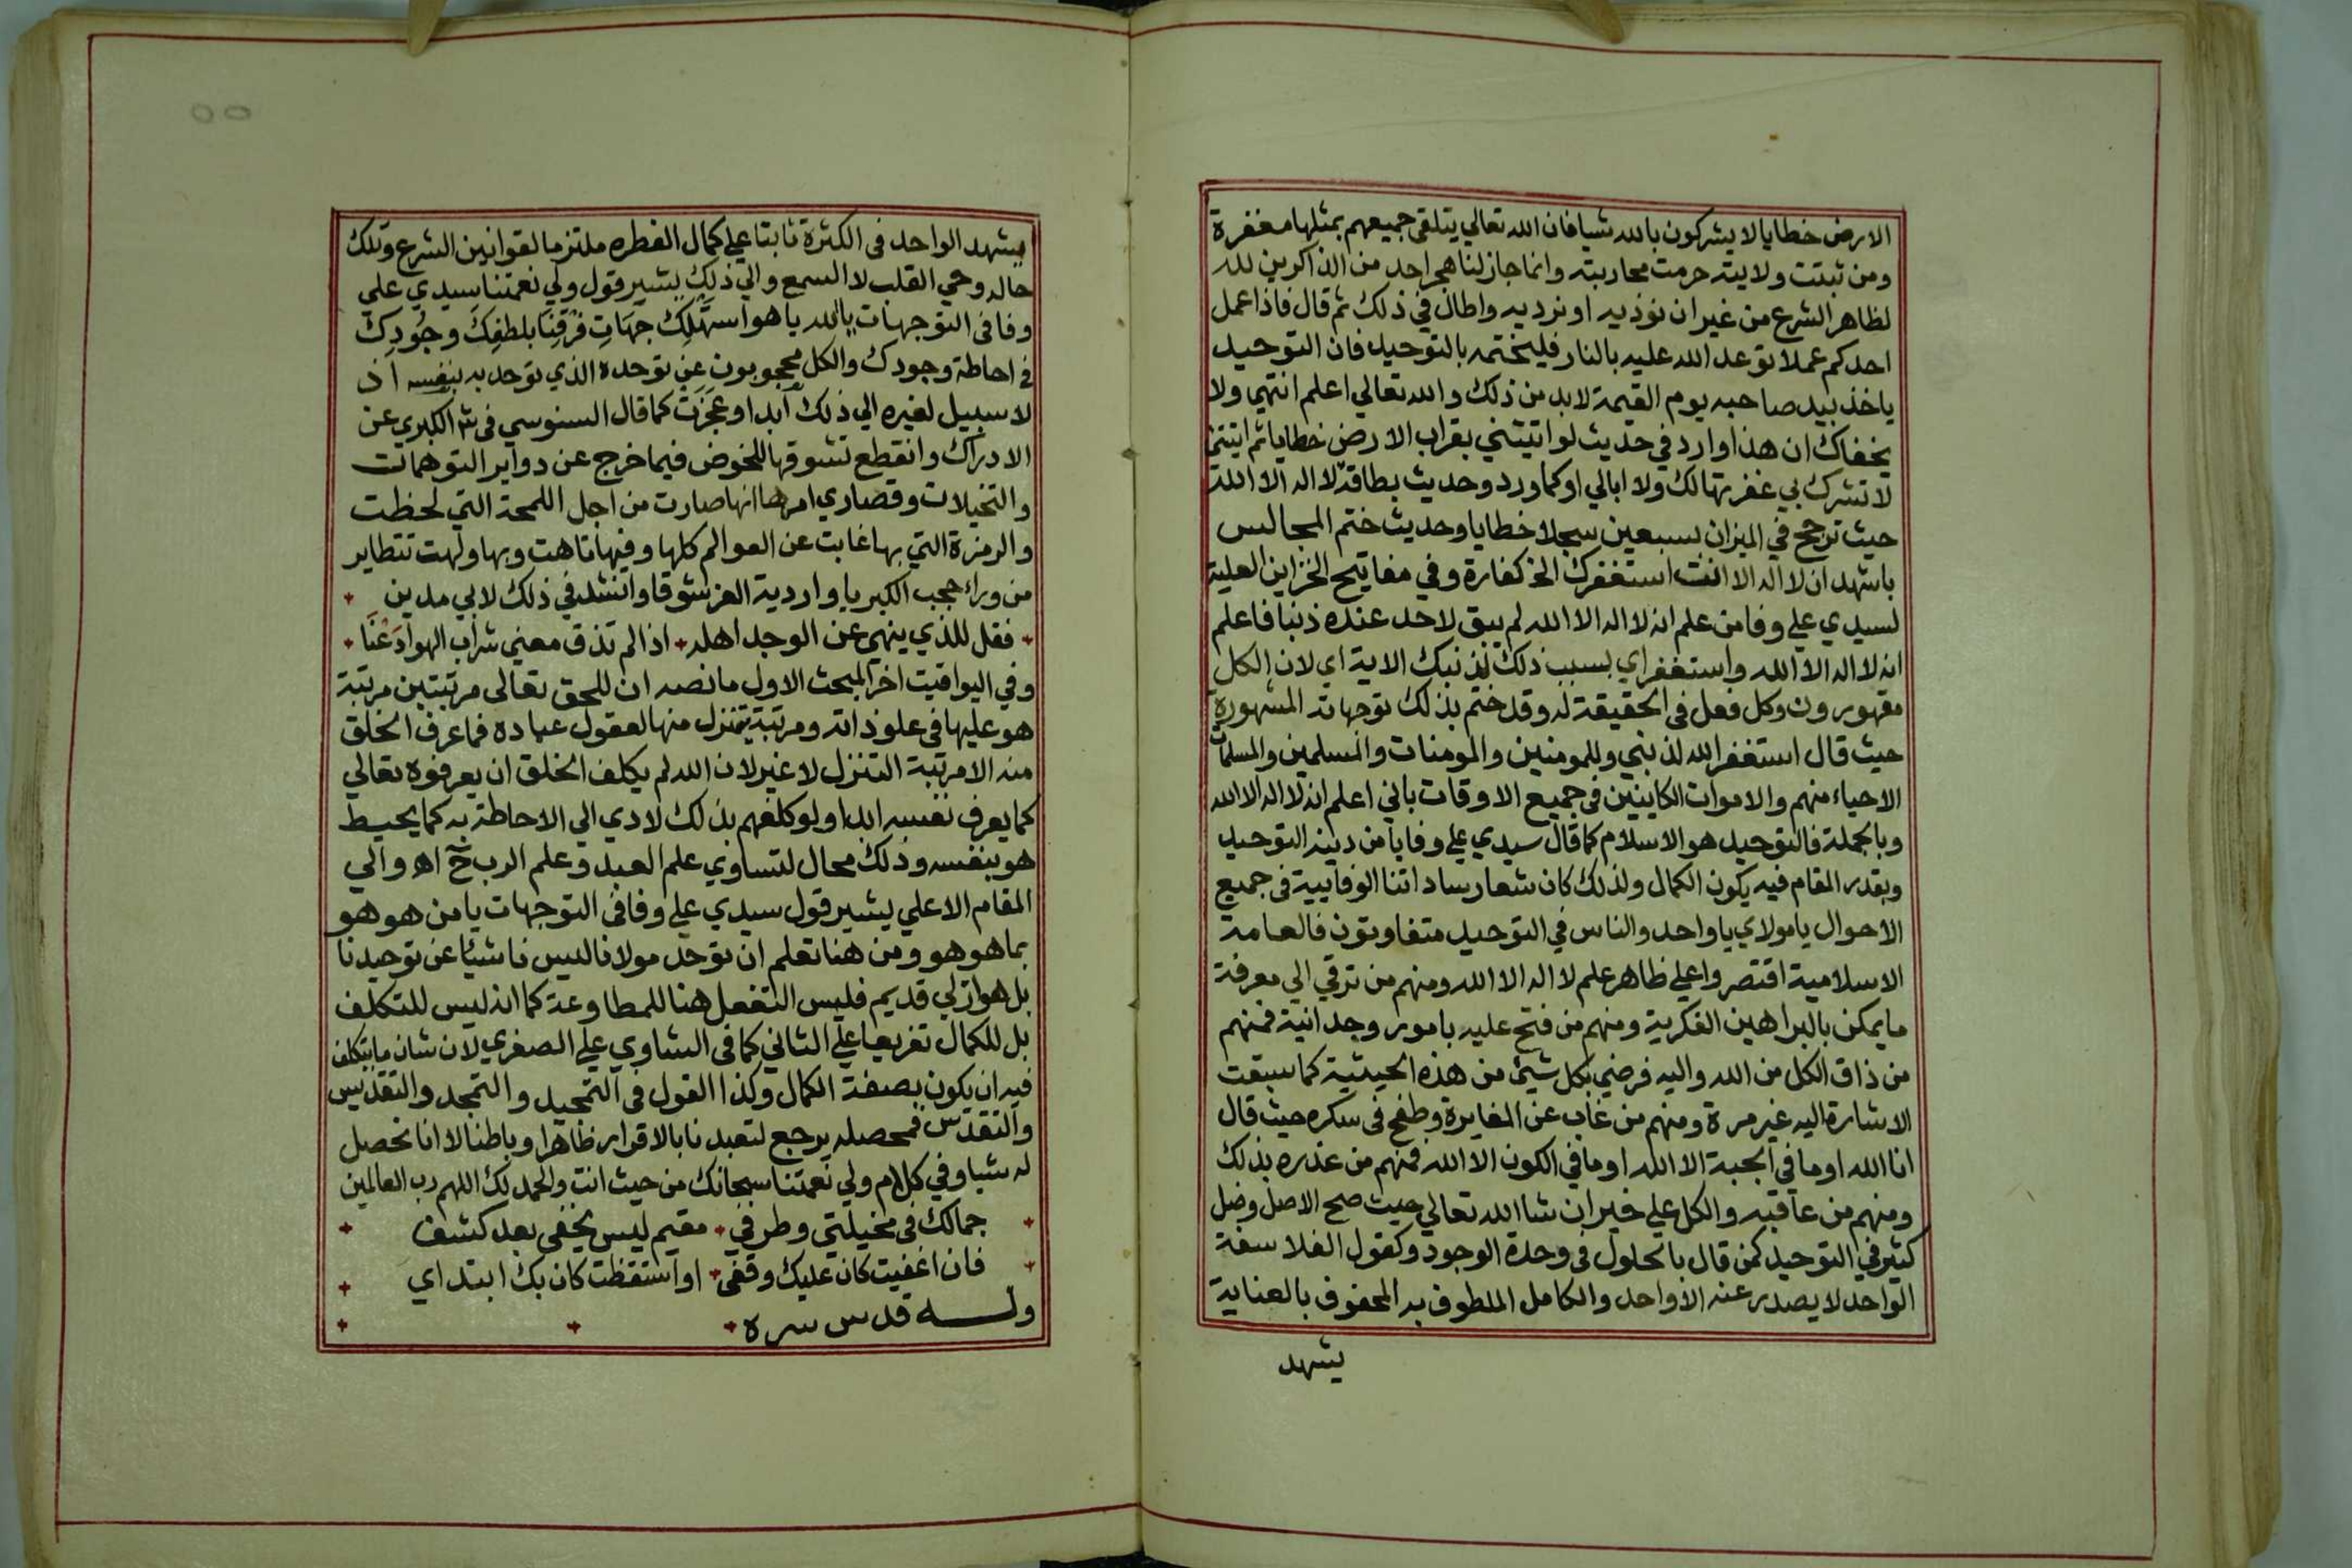 الارض خطايا لا يشركون بالله شيا فان الله تعالي يتلقي جميعهم بمثلها مغفرة
ومن ثبتت ولايته حرمت محاربته وانما جاز لنا هجر احد من الذاكرين لله
لظاهر الشرع من غير ان نوذيه او نزدريه واطال في ذلك ثم قال فاذا عمل
احدكم عملا توعد الله عليه بالنار فليختمه بالتوحيد فان التوحيد
ياخذ بيد صاحبه يوم القيمة لا بد من ذلك والله تعالي اعلم انتهي ولا
يخفاك ان هذا وارد في حديث لو اتيتني بقراب الارض خطايا ثم اتيتني
لا تشرك بي غفرتها لك ولا ابالي او كما ورد وحديث بطاقة لا اله الا الله
حيث ترجح في الميزان بسبعين سجلا خطايا وحديث ختم المجالس
باشهد ان لا اله الا انت استغفرك الخ كفارة وفي مفاتيح الخزاين العلية
لسيدي علي وفا من علم انه لا اله الا الله لم يبق لاحد عنده ذنبا فاعلم
انه لا اله الا الله واستغفر اي بسبب ذلك لذنبك الاية اي لان الكل
مقهورون وكل فعل في الحقيقة له وقد ختم بذلك توجهاته المشهورة
حيث قال استغفر الله لذنبي وللمومنين والمومنات والمسلمين والمسلمات
الاحياء منهم والاموات الكاينين في جميع الاوقات باني اعلم انه لا اله الا الله
وبالجملة فالتوحيد هو الاسلام كما قال سيدي علي وفا يا من دينه التوحيد
وبقدر المقام فيه يكون الكمال ولذلك كان شعار ساداتنا الوفاييية في جميع
الاحوال يا مولاي يا واحد والناس في التوحيد متفاوتون فالعامة
الاسلامية اقتصروا علي ظاهر علم لا اله الا الله ومنهم من ترقي الي معرفة
ما يمكن بالبراهين الفكرية ومنهم من فتح عليه بامور وجدانية فمنهم
من ذاق الكل من الله واليه فرضي بكل شيئ من هذه الحيثية كما سبقت
الاشارة اليه غير مرة ومنهم من غاب عن المغايرة وطفح في سكره حيث قال
انا الله او ما في الجبة الا الله او ما في الكون الا الله فمنهم من عذره بذلك
ومنهم من عاقبه والكل علي خير ان شا الله تعالي حيث صح الاصل وضل
كثير في التوحيد كمن قال بالحلول في وحدة الوجود وكقول الفلاسفة
الواحد لا يصدر عنه الا واحد والكامل الملطوف به المحفوف بالعناية
يشهد
يشهد الواحد في الكثرة ثابتا علي كمال الفطره ملتزما لقوانين الشرع وتلك
حاله وحي القلب لا السمع والي ذلك يشير قول ولي نعمتنا سيدي علي
وفا في التوجهات يا الله يا هو استَهلِك جهَاتِ فَرقِنَا بلطفِكَ وجُودِكَ
في احاطة وجودك والكل محجوبون عن توحده الذي توحد به بنفسه اذ
لا سبيل لغيره الي ذلك ابدا وعجزت كما قال السنوسي في شر الكبري عن
الادراك وانقطع تشوقها للخوض فيما خرج عن دواير التوهمات
والتخيلات وقصاري امرها انها صارت من اجل اللمحة التي لحظت
والرمزة التي بها غابت عن العوالم كلها وفيها تاهت وبها ولهت تتطاير
من وراء حجب الكبريا واردية العز شوقا وانشد في ذلك لابي مدين
فقل للذي ينهي عن الوجد اهله اذا لم تذق معني شراب الهوا دَعْنَا
وفي اليواقيت اخر المبحث الاول ما نصه ان للحق تعالي مرتبتين مرتبة
هو عليها في علو ذاته ومرتبة يتنزل منها لعقول عباده فما عرف الخلق
منه الا مرتبة التنزل لا غير لان الله لم يكلف الخلق ان يعرفوه تعالي
كما يعرف نفسه ابدا ولو كلفهم بذلك لادي الي الاحاطة به كما يحيط
هو بنفسه وذلك محال لتساوي علم العبد وعلم الرب ح اه والي
المقام الاعلي يشير قول سيدي علي وفا في التوجهات يا من هو هو
بما هو هو ومن هنا تعلم ان توحد مولانا ليس ناشئا عن توحيدنا
بل هو ازلي قديم فليس التفعل هنا للمطاوعة كما انه ليس للتكلف
بل للكمال تفريعا علي الثاني كما في الشاوي علي الصغري لان شان ما يتكلف
فيه ان يكون بصفة الكمال وكذا القول في التمجيد والتمجد والتقديس
والتقدس فمحصله يرجع لتعبدنا بالاقرار ظاهرا وباطنا لا انا نحصل
له شيا وفي كلام ولي نعمتنا سبحانك من حيث انت والحمد لك اللهم رب العالمين
جمالك في مخيلتي وطرفي مقيم ليس يخفي بعد كشف
فان اغفيت كان عليك وقفي او استقظت كان بك ابتداي
وله قدس سره